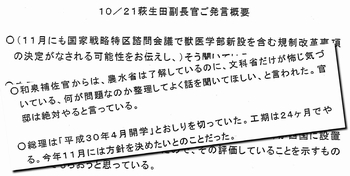 10/21萩生田副長官ご発言概要
○(11月にも国家戦略特区諮問会議で獣医学部新設を含む規制改革事項
の決定がなされる可能性をお伝えし、)そう聞いて
○和泉補佐官からは、農水省は了解しているのに、文科省だけが怖じ気づ
いている、何が問題なのか整理してよく話を聞いてほしい、と言われた。官
邸は絶対やると言っている。
○総理は「平成30年4月開学」とおしりを切っていた。工期は24ヶ月でや
る。今年11月には方針を決めたいとのことだった。
に設置
、その評価していることを示すもの
うと思っている。